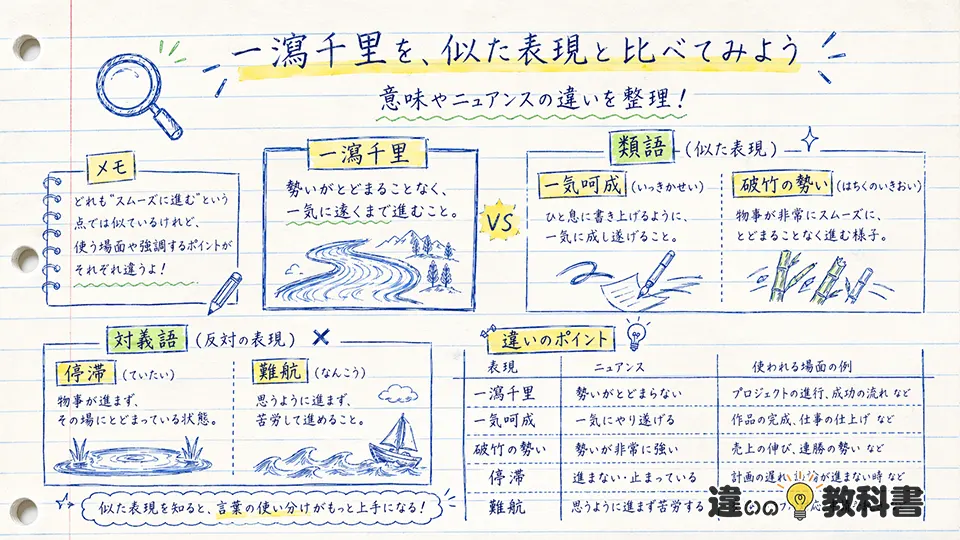 一瀉千里を、似た表現と比べてみよう
意味やニュアンスの違いを整理！
メモ
どれも"スムーズに進む"という
点では似ているけれど、
使う場面や強調するポイントが
それぞれ違うよ！
一瀉千里
勢いがとどまることなく、
一気に遠くまで進むこと。
VS
類語（似た表現）
一気呵成（いっきかせい）
ひと息に書き上げるように、
一気に成し遂げること。
破竹の勢い（はちくのいきおい）
物事が非常にスムーズに、
とどまることなく進む様子。
対義語（反対の表現）
停滞（ていたい）
物事が進まず、
その場にとどまっている状態。
難航（なんこう）
思うように進まず、
苦労して進めること。
似た表現を知ると、言葉の使い分けがもっと上手になる！
違いのポイント
表現 ニュアンス 使われる場面の例
一瀉千里 勢いがとどまらない プロジェクトの進行、成功の流れ など
一気呵成 一気にやり遂げる 作品の完成、仕事の仕上げ など
破竹の勢い 勢いが非常に強い 売上の伸び、連勝の勢い など
停滞 進まない・止まっている 計画の遅れ、が進まない時 など
難航 思うように進まず苦労する
違いの教科書